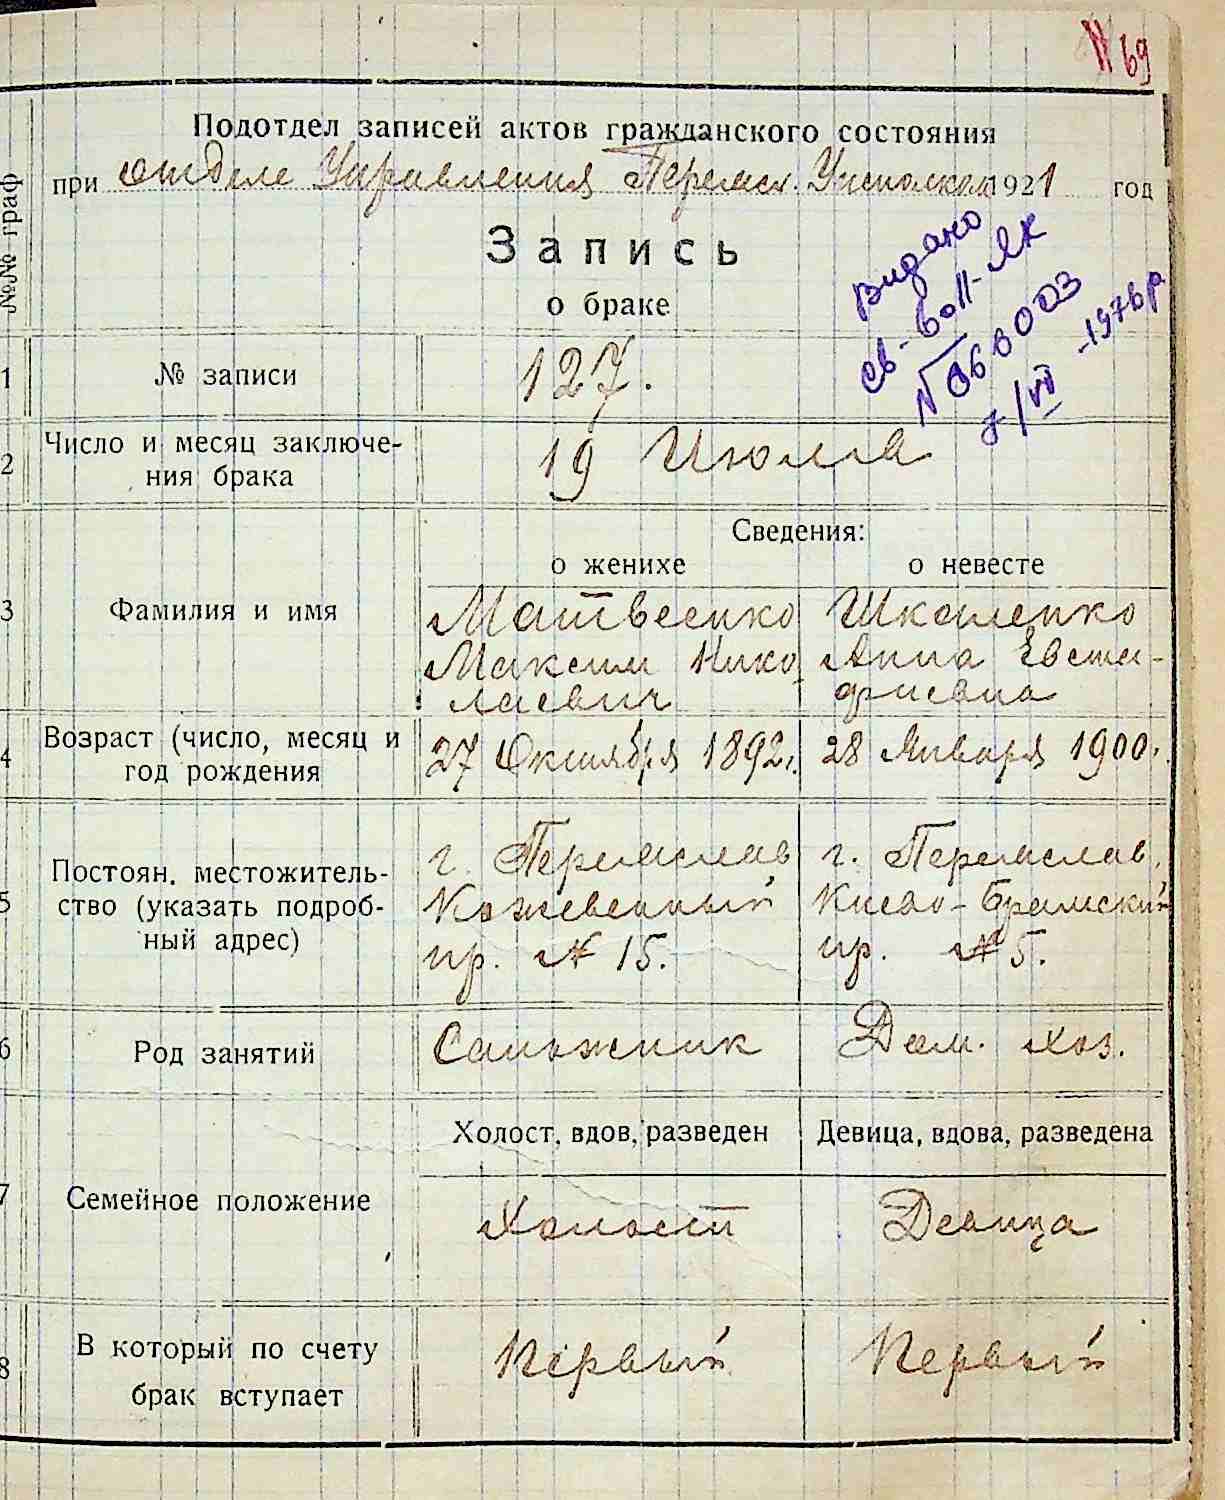 № 69
Подотдел записей актов гражданского состояния
при отделе Управления Переясл. Уисполкома 1921 год
Запись
о браке
Видано
св-во II-ЯК
№ 068003
7/VII -1976 р
№№ граф
1 № записи 127.
2 Число и месяц заключе-
ния брака 19 Июля
Сведения:
о женихе о невесте
3 Фамилия и имя Матвеенко Шкаленко
Максим Нико- Анна Евста-
лаевич фиевна
4 Возраст (число, месяц и
год рождения 27 Октября 1892 г. 28 Января 1900 г.
5 Постоян. местожитель-
ство (указать подроб-
ный адрес)
г. Переяслав г. Переяслав,
Кожевенный Киево-Брамский
пр. № 15. пр. № 5.
6 Род занятий Сапожник Дом. хоз.
Холост, вдов, разведен Девица, вдова, разведена
7 Семейное положение Холост Девица
8 В который по счету
брак вступает Первый Первый